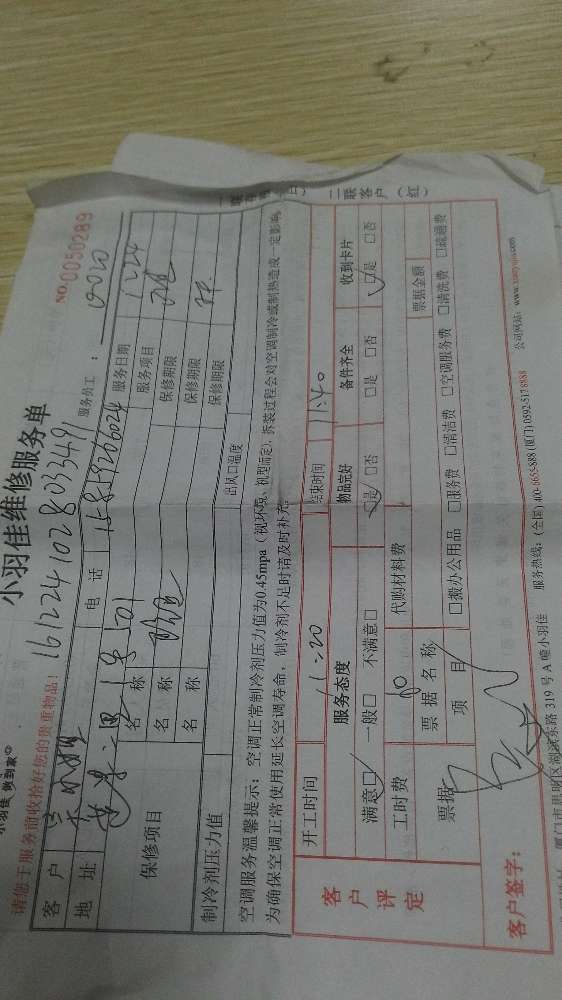 小羽佳 做到家
小羽佳维修服务单
NO.0050289
请您于服务前收拾好您的贵重物品!
161224102803349
服务员工:
客户
电话
服务日期 1224
地址
服务项目
保修项目
名称
保修期限
名称
保修期限
名称
保修期限
制冷剂压力值
出风口温度
空调服务温馨提示:空调正常制冷剂压力值为0.45mpa(视环境、机型而定),拆装过程会对空调制冷或制热造成一定影响,
为确保空调正常使用延长空调寿命,制冷剂不足时请及时补充。
二联客户(红)
开工时间 11:20
结束时间 11:40
客户评定
服务态度
物品完好
备件齐全
收到卡片
满意□ 一般□ 不满意□
□是 □否
□是 □否
□是 □否
工时费 60
代购材料费
票据
票据名称
票据金额
项目
□搬办公用品 □服务费 □清洁费 □空调服务费 □清洗费 □疏通费
客户签字:
319号A幢小羽佳
服务热线:(全国)400-6655-888(厦门)0592-5178888
公司网站:www.xiaoyujia.com